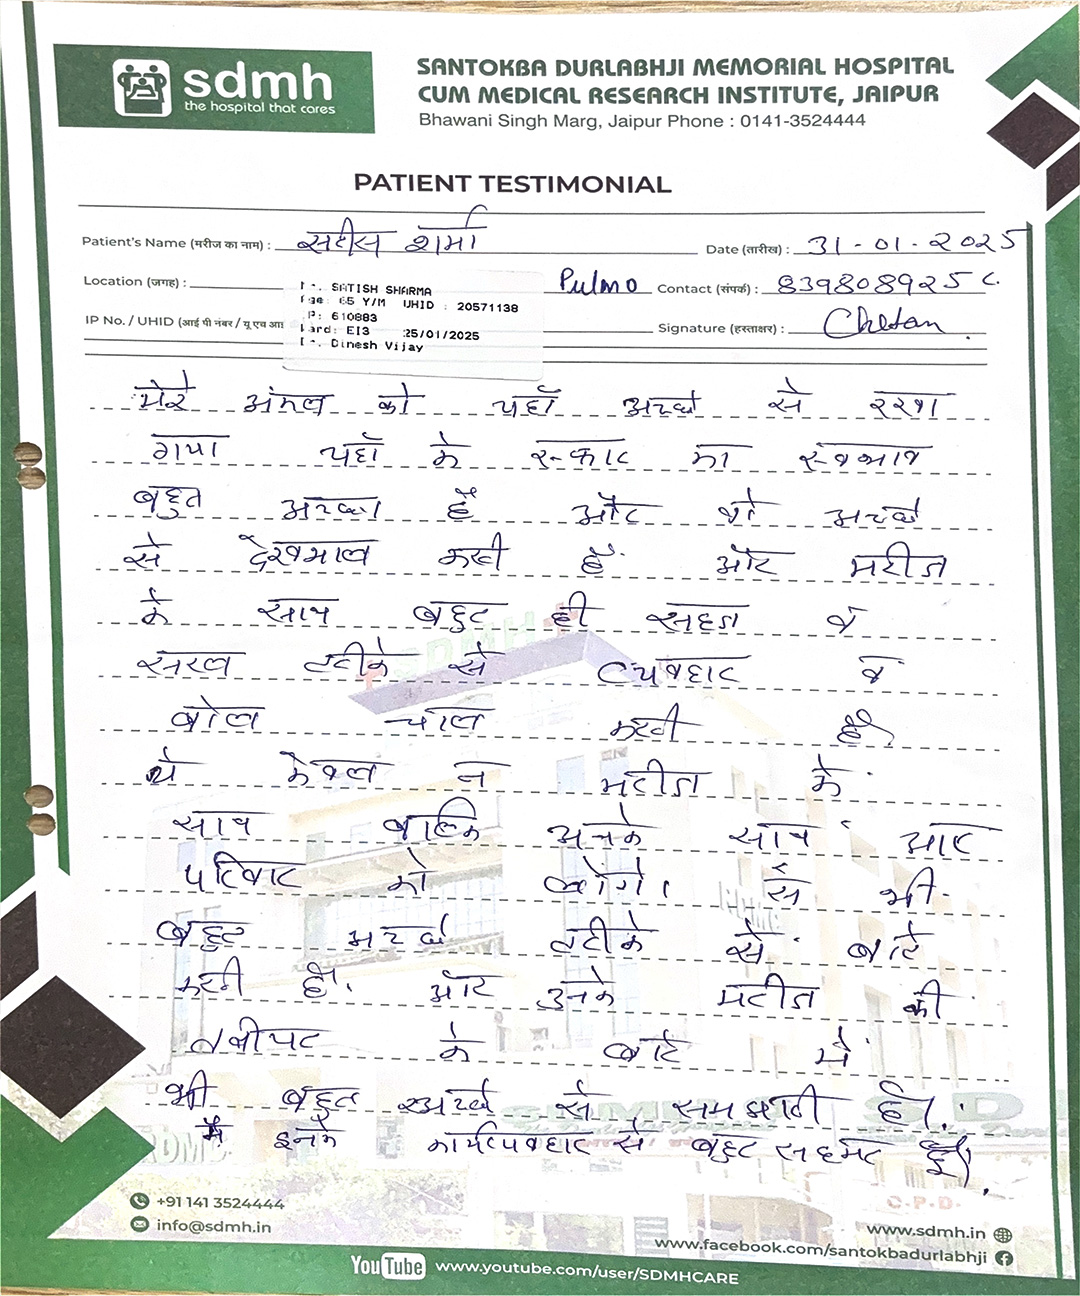 sdmh
the hospital that cares
SANTOKBA DURLABHJI MEMORIAL HOSPITAL
CUM MEDICAL RESEARCH INSTITUTE, JAIPUR
Bhawani Singh Marg, Jaipur Phone : 0141-3524444
PATIENT TESTIMONIAL
Patient's Name (मरीज का नाम) : सतीस शर्मा Date (तारीख) : 31-01-2025
Location (जगह) : Pulmo Contact (संपर्क) : 839808925
SATISH SHARMA
65 Y/M UHID : 20571138
IP: 610883
Ward: EI3 25/01/2025
Dinesh Vijay
IP No. / UHID (आई पी नंबर / यू एच आ Signature (हस्ताक्षर) : Chetan
मेरे अंकल को यहाँ अच्छे से रखा
गया यहाँ के स्वभाव
बहुत अच्छा हैं और वो अच्छे
से देखभाल करती हैं और मरीज
के साथ बहुट ही सहज व
सरल तरीके से व्यवहार व
बोल चाल करती है।
ये केवल न मरीज के
साथ बल्कि साथ आए
परिवार को भी
बहुट अच्छे तरीके से बाते
करती है। और उनके मरीज की
तबीयट के बारे मे
भी बहुत अच्छे से समझाती है।
मैं इनके कार्यव्यवहार से बहुट सहमट हूँ।
SDMH
O.P.D.
+91 141 3524444
info@sdmh.in
www.sdmh.in
www.facebook.com/santokbadurlabhji
YouTube www.youtube.com/user/SDMHCARE